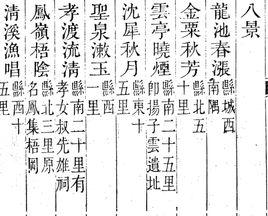 八景
龍池春漲 縣城西南隅
金粟秋芳 縣北五十里
雲亭曉煙 縣南二十五里即揚子雲遺址
沈犀秋月 縣東十五里
聖泉漱玉 縣西一里
孝渡流清 縣南二十里有孝女叔先雄祠
鳳嶺梧陰 縣北三里原名鳳集梧岡
清溪漁唱 縣西十五里